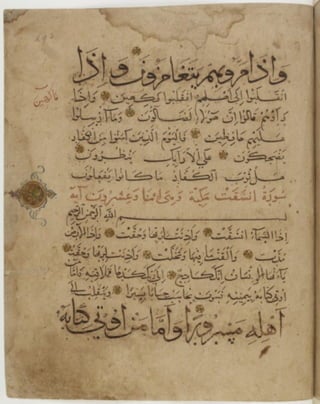 واذا مروا بهم يتغامزون واذا
انقلبوا الى اهلهم انقلبوا فكهين واذا
راوهم قالوا ان هؤلاء لضالون وما ارسلوا
عليهم حافظين فاليوم الذين آمنوا من الكفار
يضحكون على الارائك ينظرون
هل ثوب الكفار ما كانوا يفعلون
سورة انشقت مكية وهي وعشرون آية
بسم الله الرحمن الرحيم
اذا السماء انشقت واذنت لربها وحقت واذا الارض
مدت والقت ما فيها وتخلت واذنت لربها وحقت
يا ايها الانسان انك كادح الى ربك كدحا فملاقيه فاما من
اوتي كتابه بيمينه فسوف يحاسب حسابا يسيرا وينقلب الى
اهله مسرورا واما من اوتي كتابه